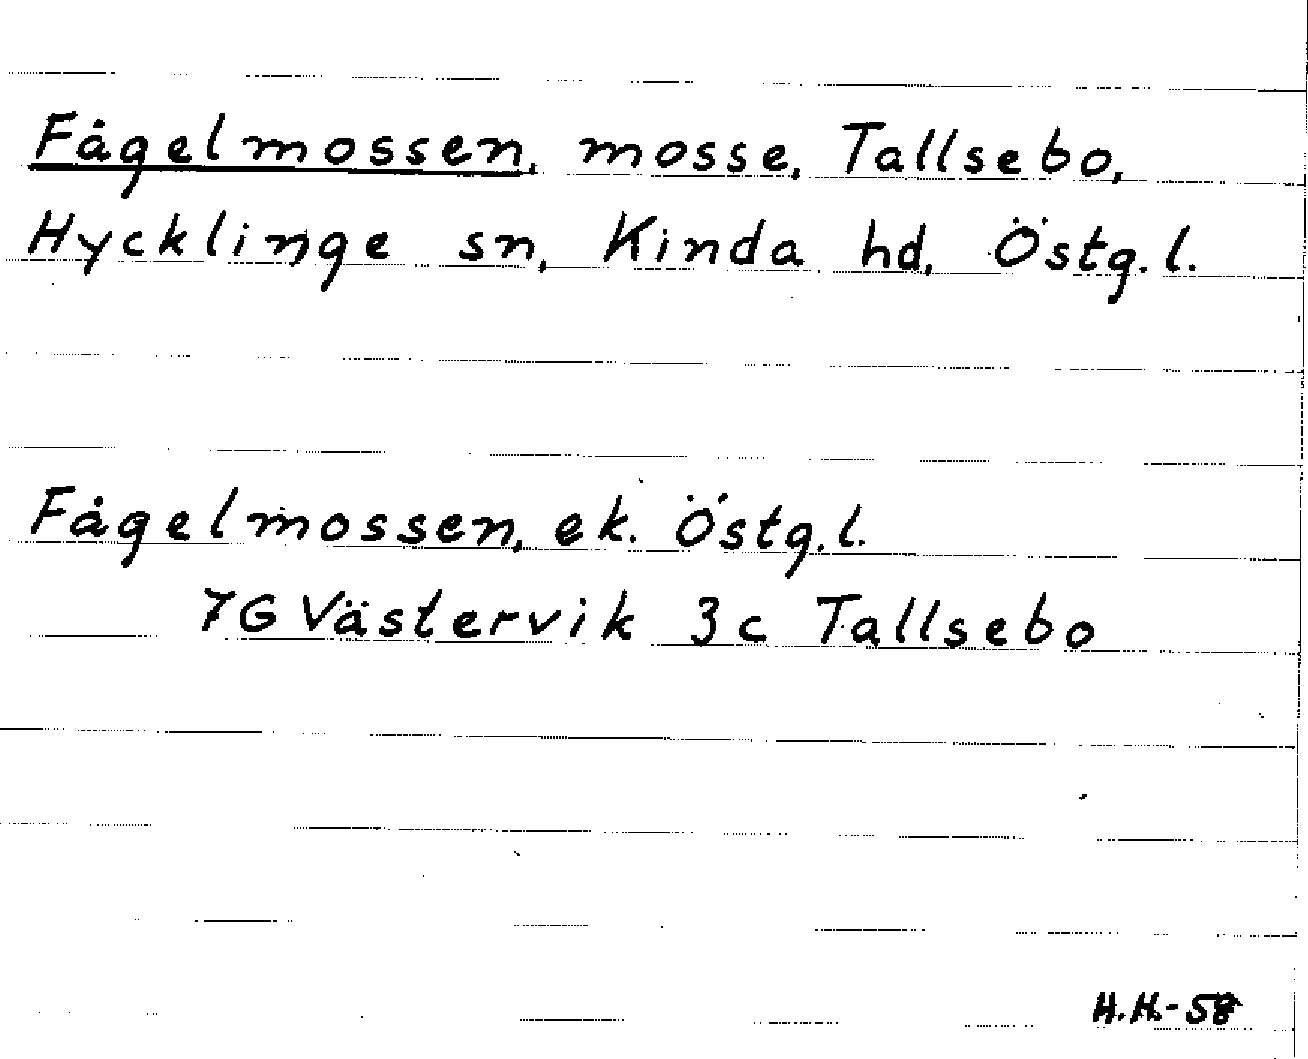 Fågelmossen, mosse, Tallsebo,
Hycklinge sn, Kinda hd, Östg.l.
Fågelmossen, ek. Östg.l.
7G Västervik 3c Tallsebo
H.H.-58